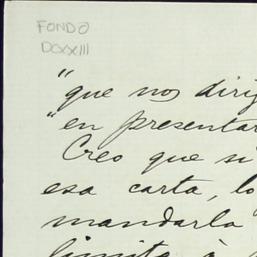 FONDO
DCXXIII
"que nos dirig
"en presentar
Creo que si
esa carta, lo
mandarla
limita à